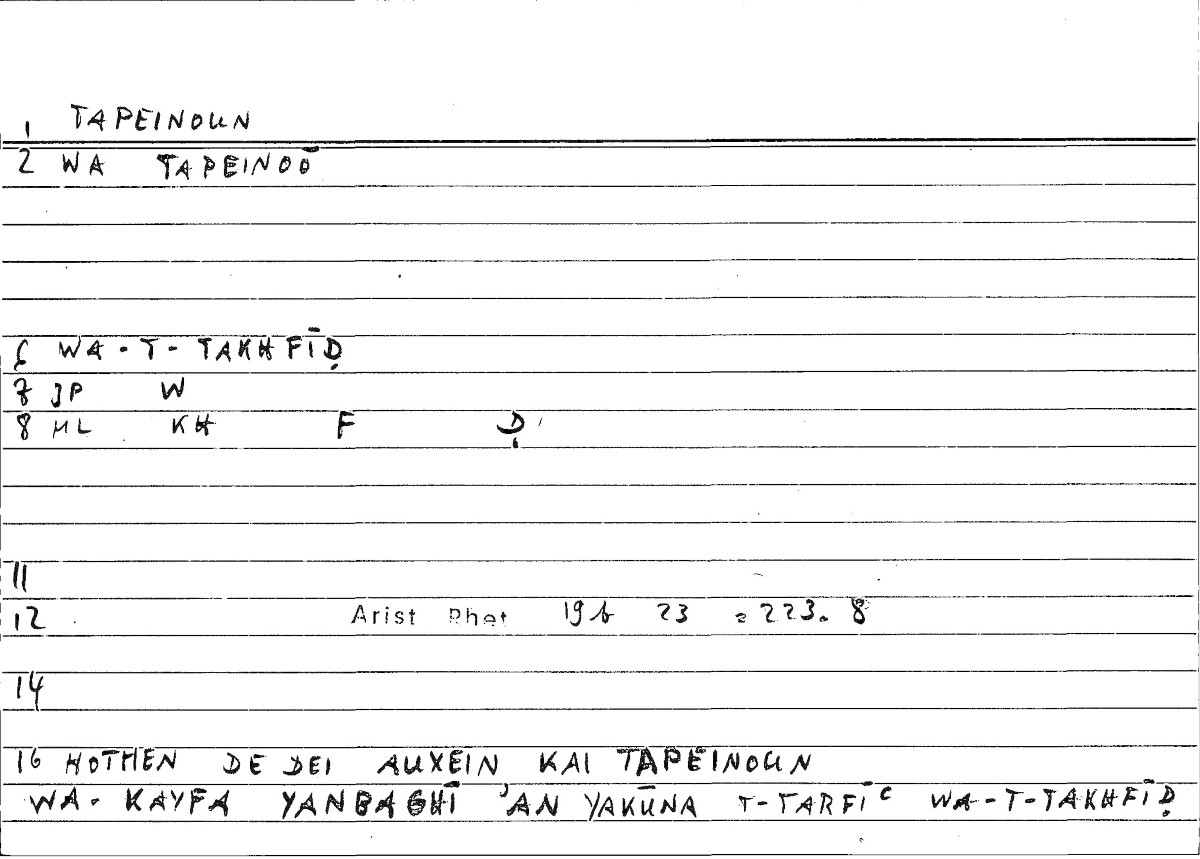 1 TAPEINOUN
2 WA TAPEINOŌ
6 WA-T-TAKHFĪḌ
7 JP W
8 ML KH F Ḍ
11
12 Arist Rhet 19b 23 = 223. 8
14
16 HOTHEN DE DEI AUXEIN KAI TAPEINOUN
WA-KAYFA YANBAGHĪ ʾAN YAKŪNA T-TARFĪʿ WA-T-TAKHFĪḌ